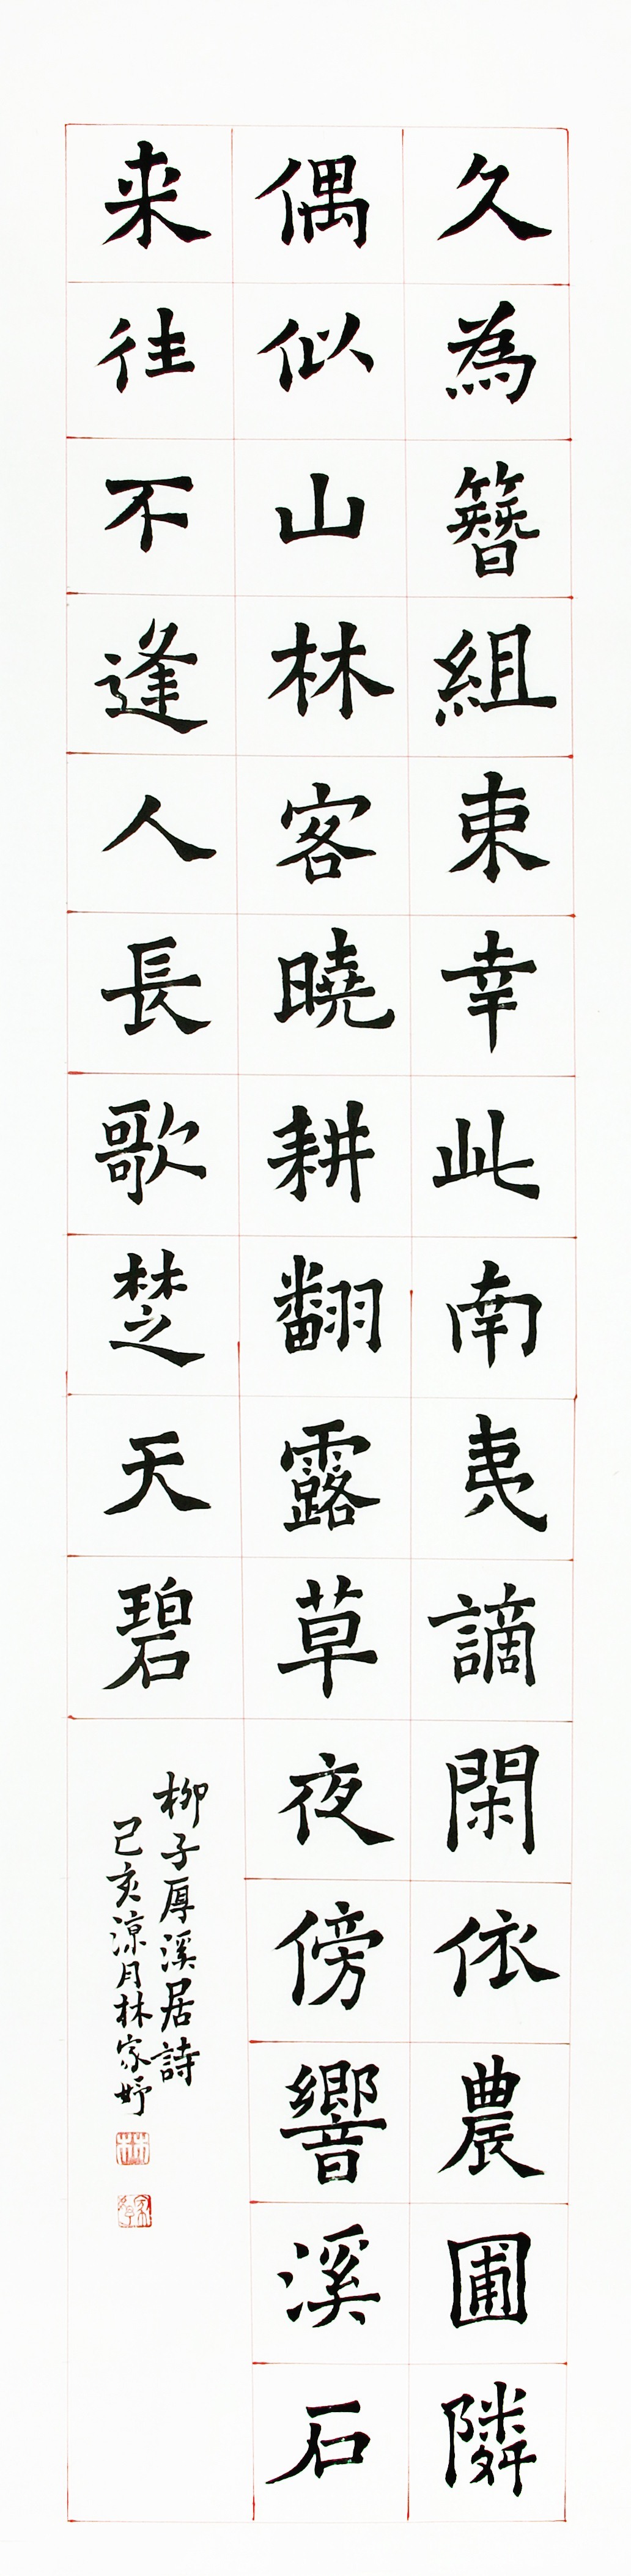 久為簪組束幸此南夷謫閑依農圃隣
偶似山林客曉耕翻露草夜傍響溪石
来往不逢人長歌楚天碧
柳子厚溪居詩
己亥涼月林家妤